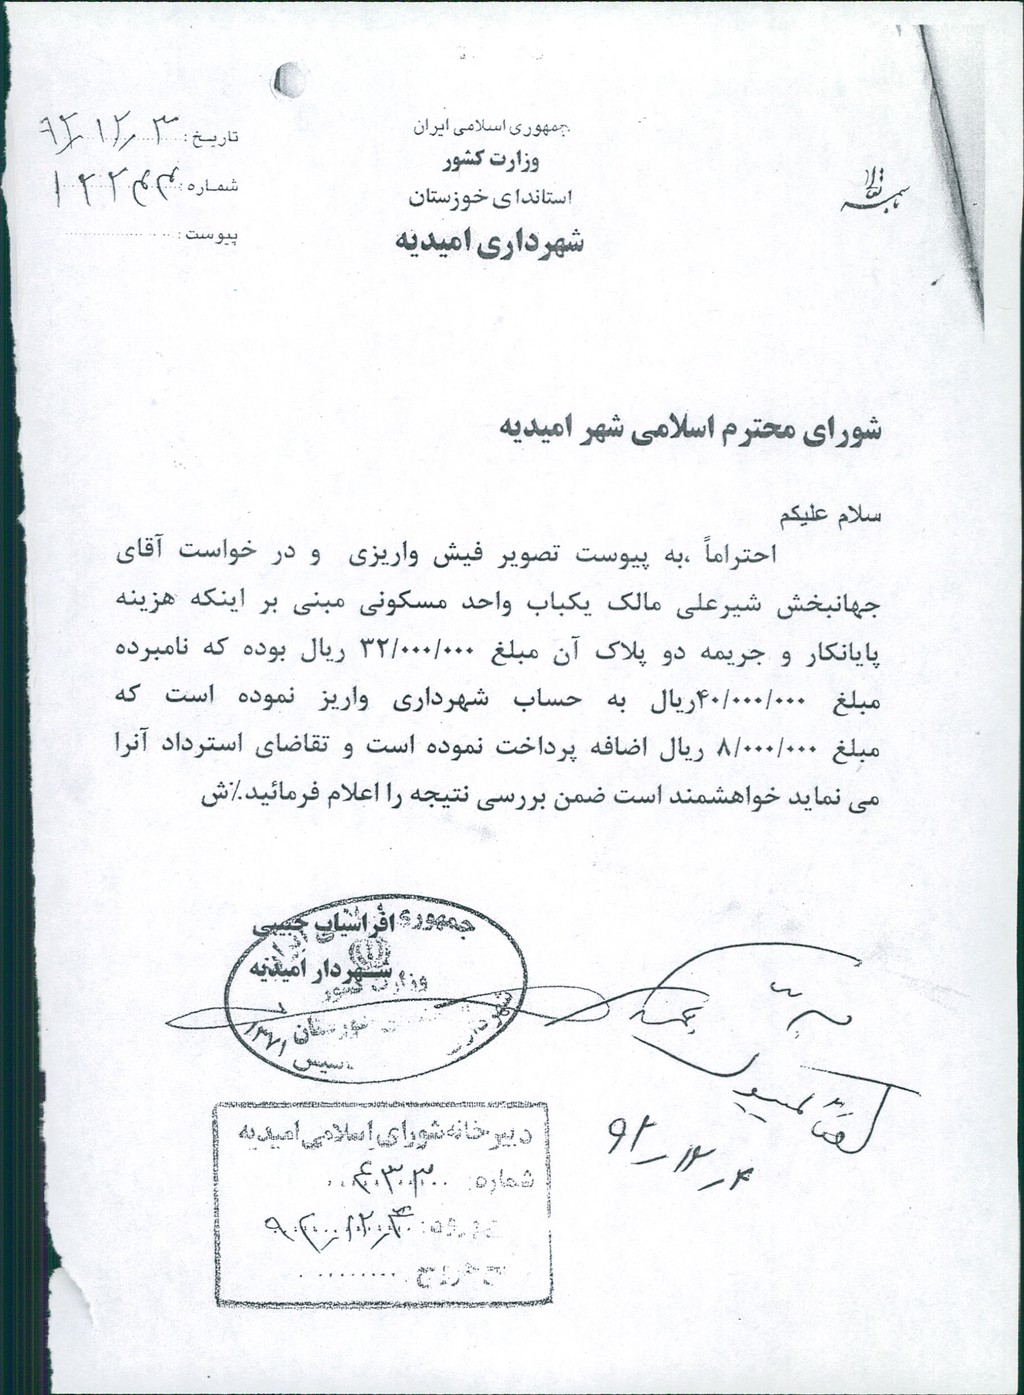 باسمه تعالی
جمهوری اسلامی ایران
وزارت کشور
استاندای خوزستان
شهرداری امیدیه
تاریخ: ۹۲/۱۲/۳
شماره:
پیوست:
شورای محترم اسلامی شهر امیدیه
سلام علیکم
احتراماً ،به پیوست تصویر فیش واریزی و در خواست آقای
جهانبخش شیرعلی مالک یکباب واحد مسکونی مبنی بر اینکه هزینه
پایانکار و جریمه دو پلاک آن مبلغ ۳۲/۰۰۰/۰۰۰ ریال بوده که نامبرده
مبلغ ۴۰/۰۰۰/۰۰۰ریال به حساب شهرداری واریز نموده است که
مبلغ ۸/۰۰۰/۰۰۰ ریال اضافه پرداخت نموده است و تقاضای استرداد آنرا
می نماید خواهشمند است ضمن بررسی نتیجه را اعلام فرمائید.٪ش
افراسیاب حبیبی
شهردار امیدیه
جمهوری
وزارت کشور
خوزستان
تاسیس ۱۳۷۱
۹۲-۱۲-۴
دبیرخانه شورای اسلامی امیدیه
شماره: